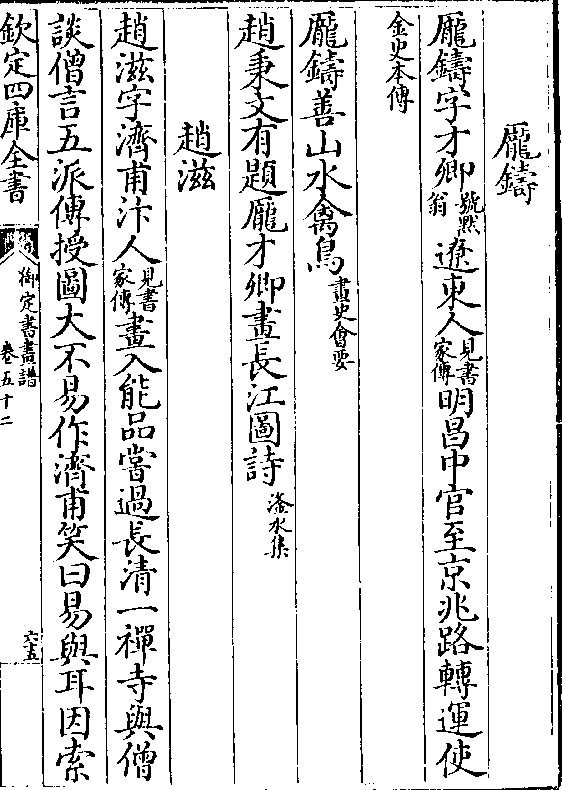 龎鑄
龎鑄字才卿號默翁遼東人見書家傳明昌中官至京兆路轉運使
金史本傳
龎鑄善山水禽鳥畫史會要
趙秉文有題龎才卿畫長江圖詩滏水集
趙滋
趙滋字濟甫汴人見書家傳畫入能品嘗過長清一禪寺與僧
談僧言五派傳授圖大不易作濟甫笑曰易與耳因索
欽定四庫全書
御定書畫譜
卷五十二
六五